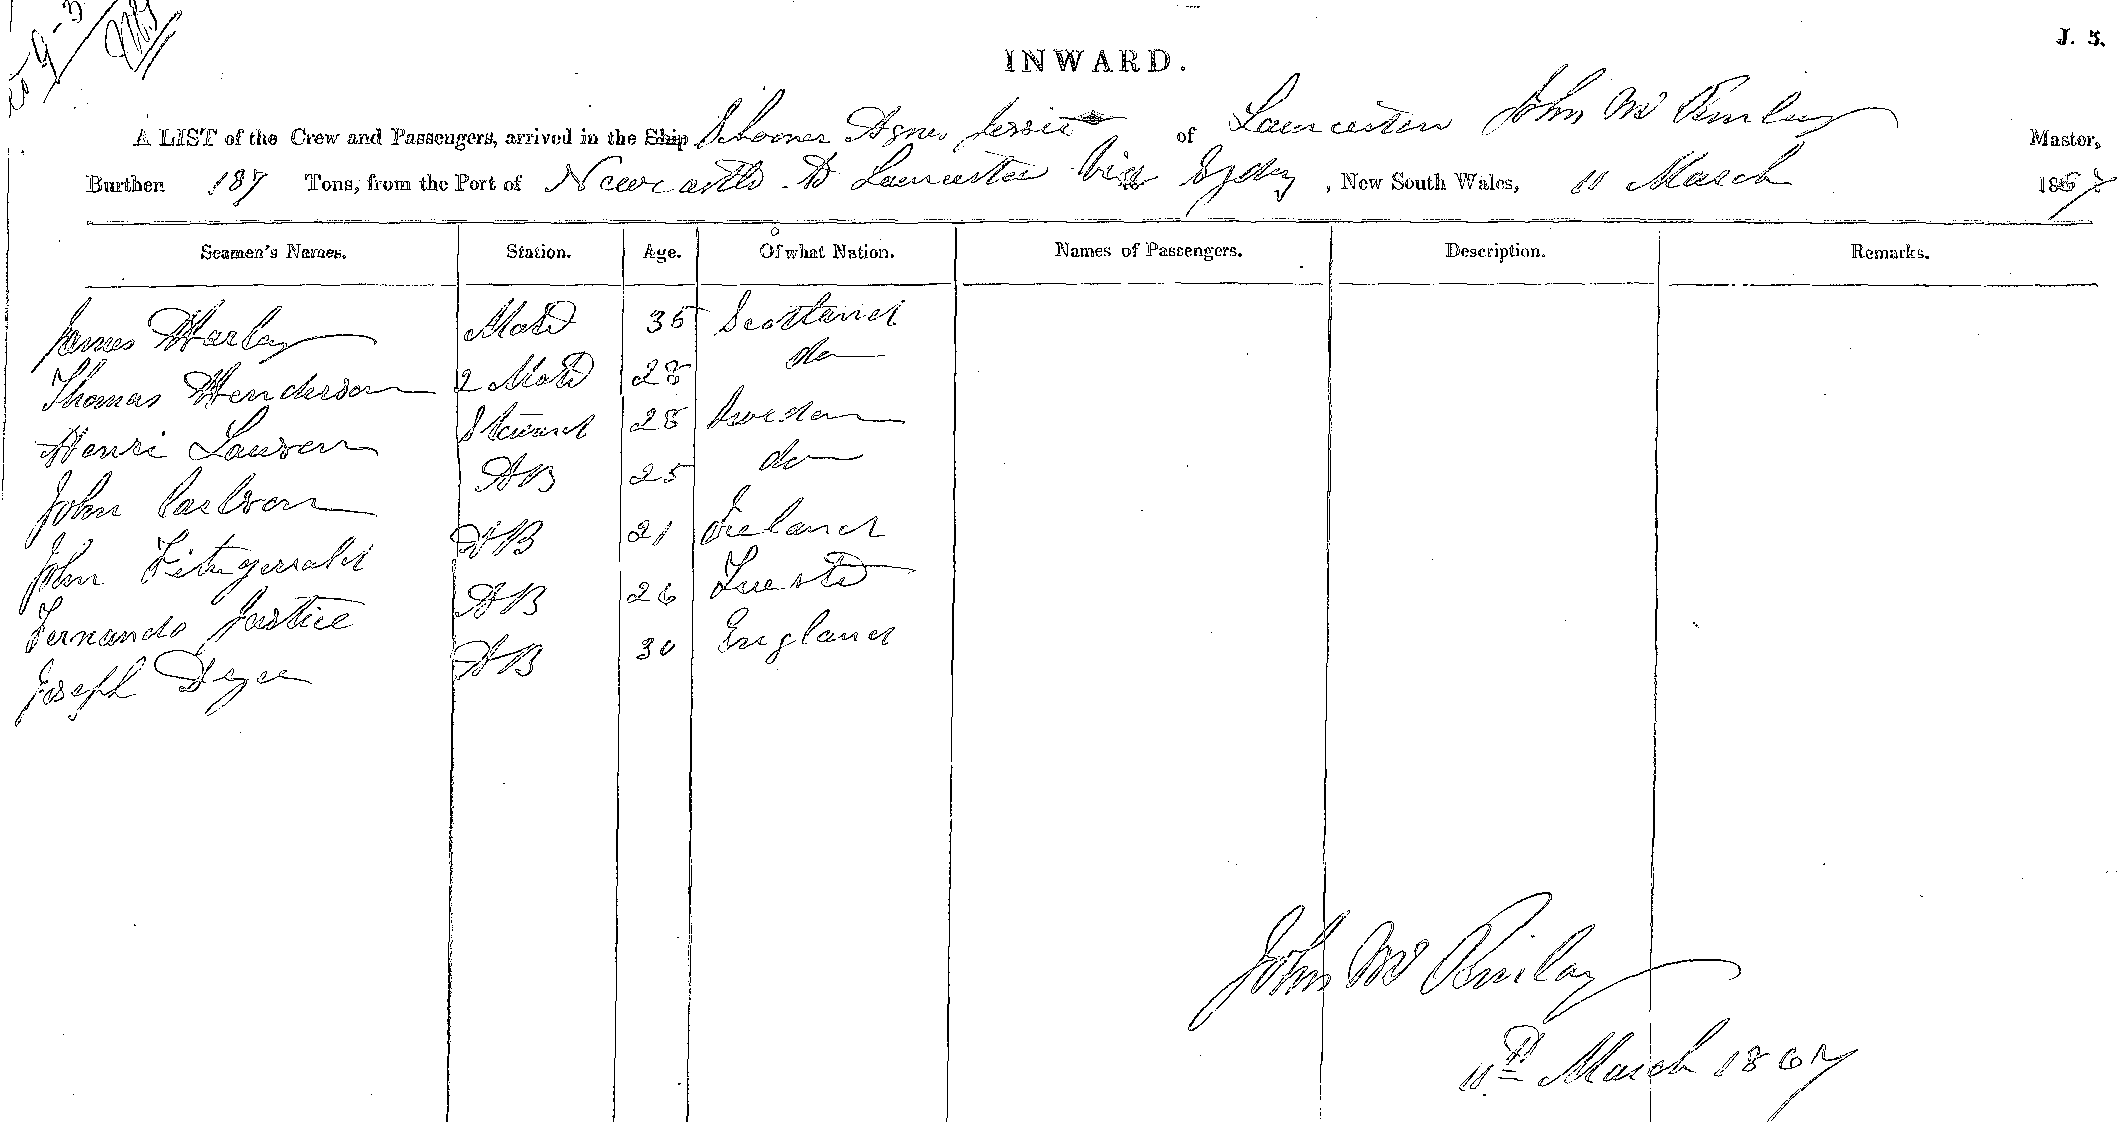 INWARD.
J. 5.
A LIST of the Crew and Passengers, arrived in the Ship Schooner Agnes Jessie of Launceston John Mc Kinlay Master,
Burthen 187 Tons, from the Port of Newcastle to Launceston Via Sydney, New South Wales, 11 March 1867
Seamen's Names. Station. Age. Of what Nation. Names of Passengers. Description. Remarks.
James Harlay Mate 35 Scotland
Thomas Henderson 2 Mate 28 do
Henri Lawsen Steward 28 Sweden
John Carlson AB 25 do
John Fitzgerrald AB 21 Ireland
Fernando Justice AB 26 Trieste
Joseph Dyer AB 30 England
John Mc Kinlay
11th March 1867